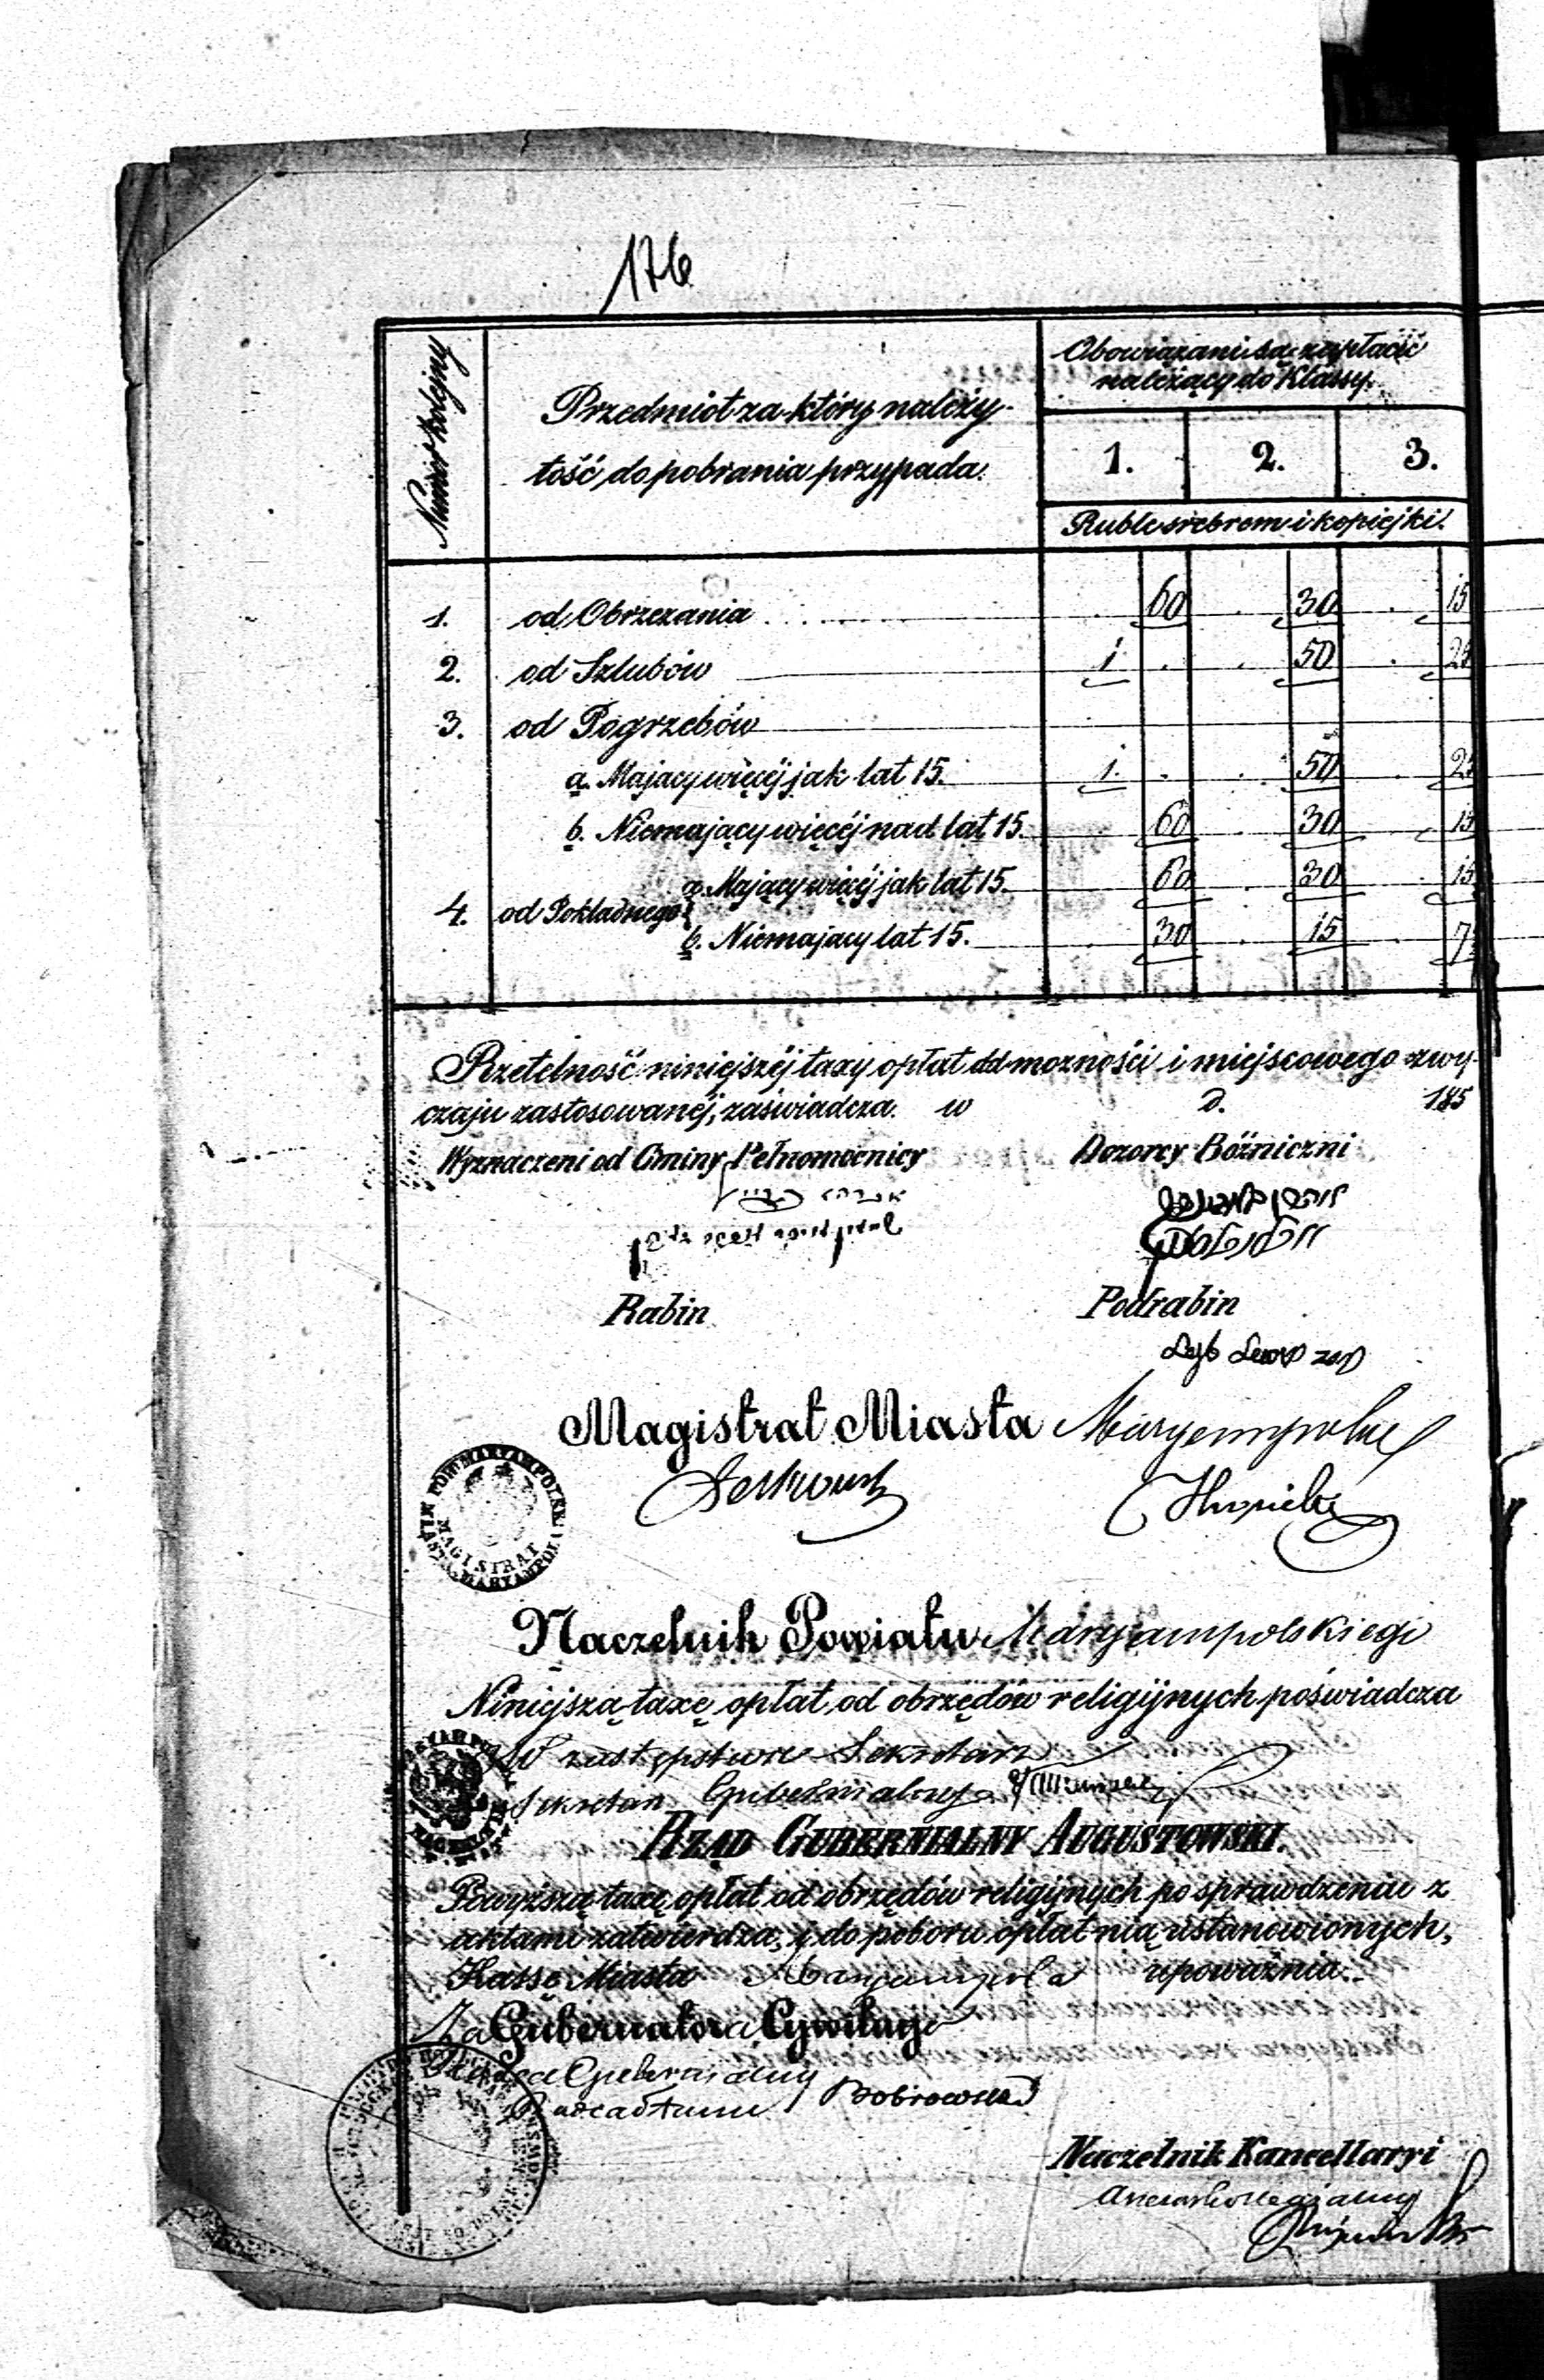 176
Numer kolejny
Przedmiot za który należy-
tość do pobrania przypada.
Obowiązani są zapłacić
należący do Klassy.
1. 2. 3.
Ruble srebrem i kopiejki.
1. od Obrzezania 60 30 15
2. od Szlubów 1 . 50 25
3. od Pogrzebów
a. Mający więcéj jak lat 15. 1. . 50 25
b. Niemający więcéj nad lat 15. 60 30 15
4. od Pokładnego a. Mający więcéj jak lat 15. 60 30 15
b. Niemający lat 15. 30 15 7
Rzetelność niniejszéj taxy opłat od możności i miejscowego zwy-
czaju zastosowanéj, zaświadcza. w D. 185
Wyznaczeni od Gminy Pełnomocnicy
Dozorcy Bóżniczni
Rabin
Podrabin
Magistrat Miasta
MAGISTRAT
Naczelnik Powiatu Maryampolskiego
Niniejszą taxę opłat od obrzędów religijnych poświadcza
W zastępstwie Sekretarz
Sekretarz Gubernialny
RZĄD GUBERNIALNY AUGUSTOWSKI.
Powyższą taxę opłat od obrzędów religijnych po sprawdzeniu z
aktami zatwierdza, i do poboru opłat nią ustanowionych,
Kassę Miasta Maryampola upoważnia.
Za Gubernatora Cywilnego
Radca Gubernialny
Radca Stanu Bobrowski
Naczelnik Kancellaryi